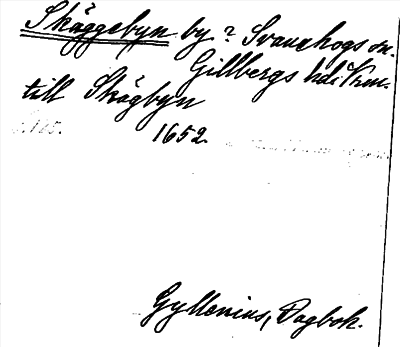 Skäggebyn by? Svanehogs sn.
Gillbergs hd. Vrm.
till Skägbyn
1652.
Gyllenius, Dagbok.